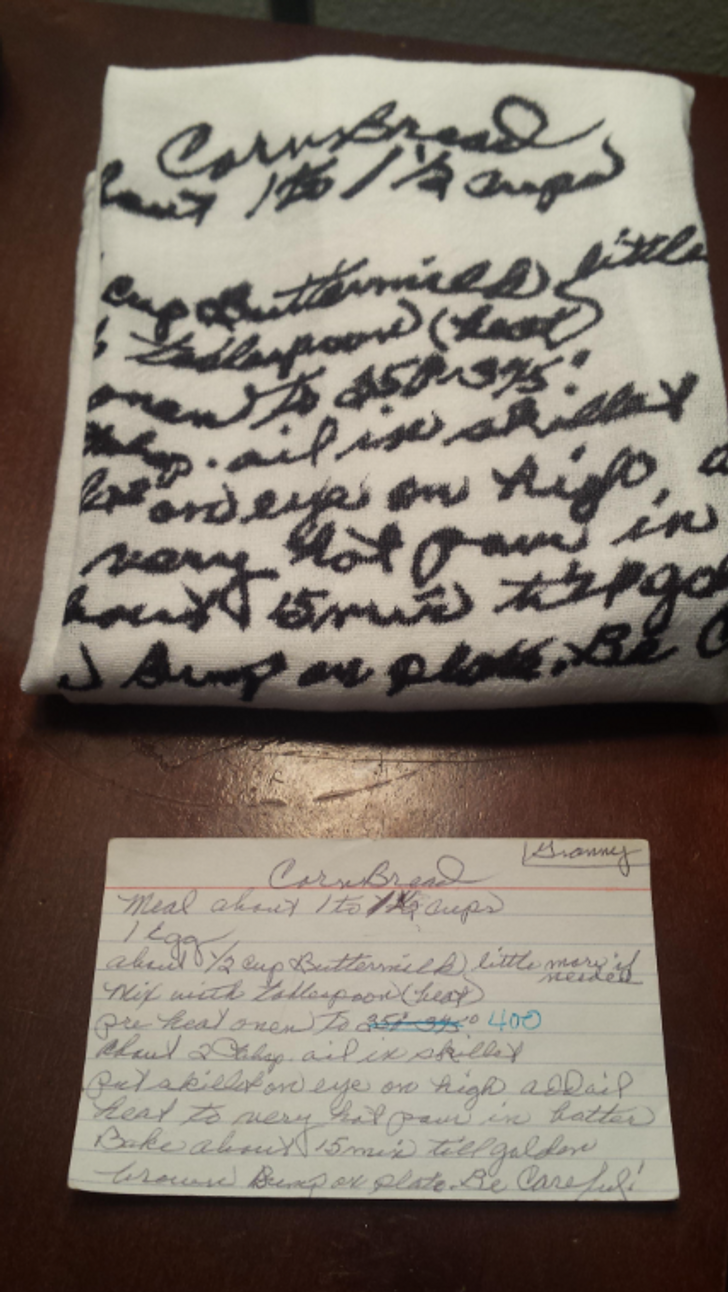 CornBread
bout 1 to 1 1/2 cups
cup Buttermilk, little
tablespoon (heat)
onen to 350-375°
tbsp. oil in skillet
on eye on high, a
very hot pour in
bout 15 min till gol
Bump on plate. Be C
Granny
CornBread
Meal about 1 to 1 1/2 cups
1 Egg
about 1/2 cup Buttermilk, little more if needed
Mix with tablespoon (heat)
pre heat onen to 350-375° 400
about 2 tbsp. oil in skillet
put skillet on eye on high add oil
heat to very hot pour in batter
Bake about 15 min till golden
brown Bump on plate. Be Careful!